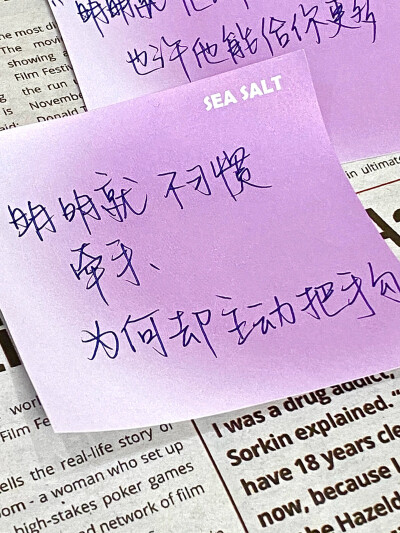 明明就
也许他能给你更多
showing
Film Festi
the run
November
Donald T
in ultimate
SEA SALT
明明就 不习惯
牵手、
为何却主动把手勾
Film Fes
ells the real-life story of
om - a woman who set up
high-stakes poker games
d network of film
I was a drug addict,
Sorkin explained. “
have 18 years cle
now, because I
the Hazeld